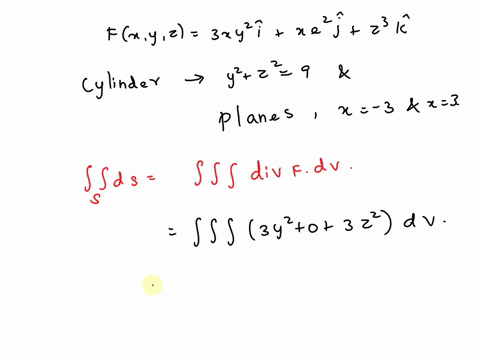 F(x,y,z) = 3xy² î + xe² ĵ + z³ k̂
Cylinder → y²+z²=9 &
planes, x=-3 & x=3
∬_S ds = ∭ div F. dv.
= ∭ (3y²+0+3z²) dv.